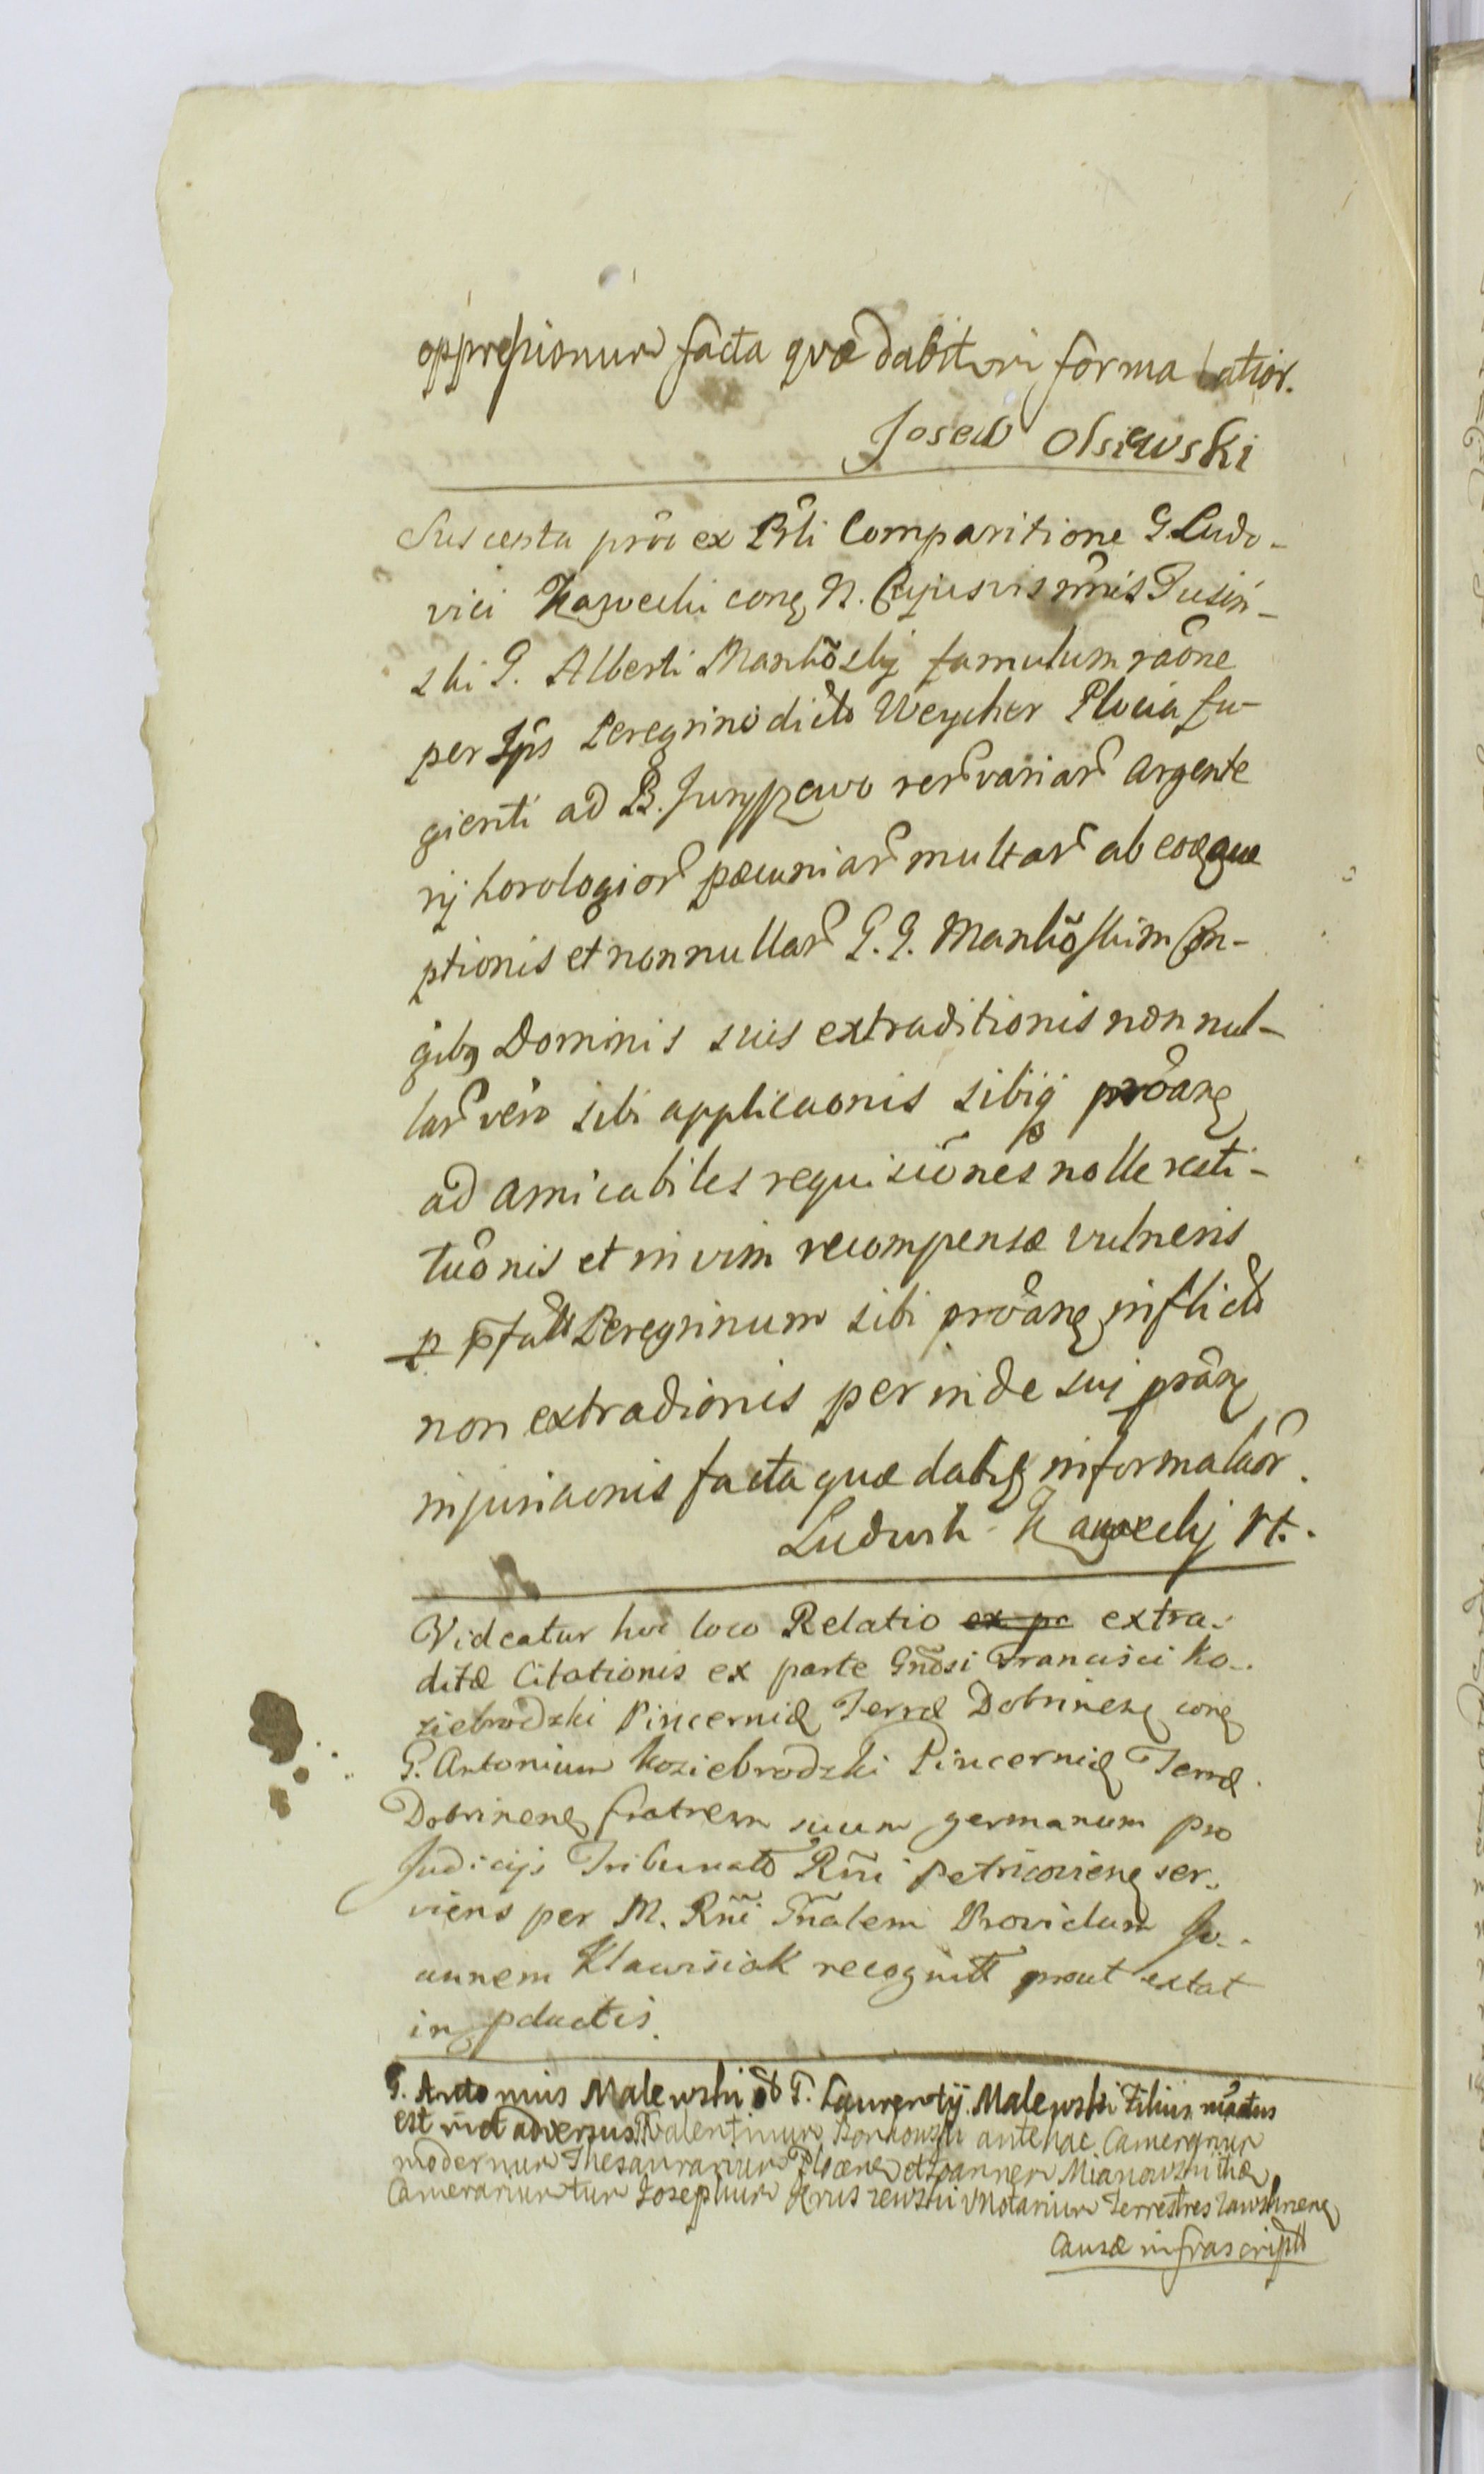 oppressionum facta quæ dabitur in forma latior.
Josew Olsiewski
Suscepta pñi ex Pñli Comparitione G. Ludo-
vici Kawecki cong N. Cujusvis nñis Jusin-
ski G. Alberti Mankõskij famulum raõne
per Ips Peregrino dicto Weycher Plocia fu-
gienti ad B. rer variar argente
rij horologior pæcuniar multar ab eo
ptionis et nonnullar G. G. Mankõskim
gibg Dominis suis extraditionis non nul-
lar vero sibi applicaonis sibiq proãng
ad amicabiles requisiones nolle resti-
tuõnis et in vim recompensæ vulneris
p pfatt Peregrinum sibi proãng inflicto
non extradionis perinde sui prãng
injuriaonis facta quæ dabit informalaõr.
Ludwik Kaweckij rt.
Videatur hoc loco Relatio ex pa extra-
ditæ Citationis ex parte Gñosi Francisci Ko-
ziebrodzki Pincernidæ Terræ Dobrineng cong
G. Antonium Koziebrodzki Pincernidæ Terræ
Dobrineng fratrem suum germanum pro
Judicijs Tribunatt Rñi Petricovieng ser-
viens per M. Rñi Gñalem Providum Jo-
annem Klawisiak recognitt prout extat
in pductis.
G. Antonius Malewski G. Laurentij Malewski Filius nñatus
est viet adversus G. Valentinum Borkowski antehac Camerarium
modernum Thesaurarium Ploceng et Joannem Mianowski itidæ
Camerarium tum Josephum Kruszewski VNotarium Terrestres Zawskrneng
Causæ infrascriptt